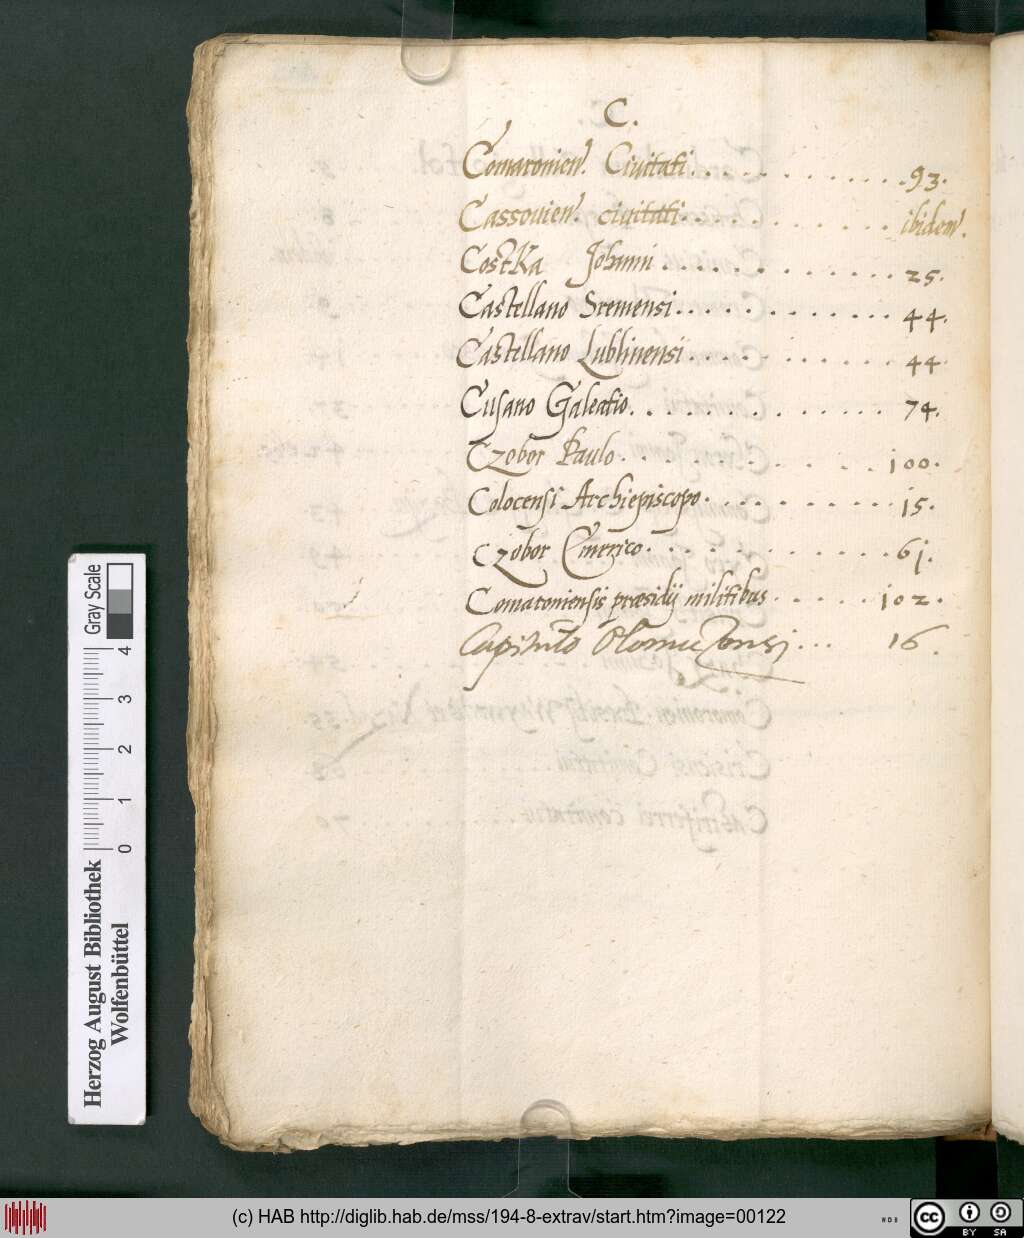 C.
Comaronien. Ciuitati. . . . . . . . . . . .93.
Cassouien. ciuitati. . . . . . . . . . ibidem.
Costka Johanni . . . . . . . . . . . . 25.
Castellano Sremensi. . . . . . . . . . 44.
Castellano Lublinensi. . . . . . . . . 44.
Cusano Galeatio. . . . . . . . . . . . 74.
Czobor Paulo. . . . . . . . . . . 100.
Colocensi Archiepiscopo. . . . . . . . . 15.
Czobor Emerico. . . . . . . . . . . 61.
Comaroniensis præsidij militibus . . . . . . 102.
Capitulo Olomuczensi ... 16.
Gray Scale
0 1 2 3 4
Herzog August Bibliothek
Wolfenbüttel
(c) HAB http://diglib.hab.de/mss/194-8-extrav/start.htm?image=00122
WDB
cc BY SA